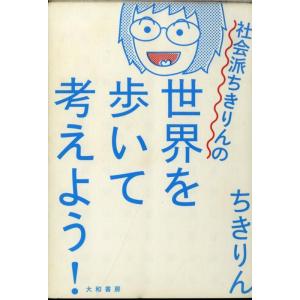 社会派ちきりんの
世界を
歩いて
考えよう!
ちきりん
大和書房